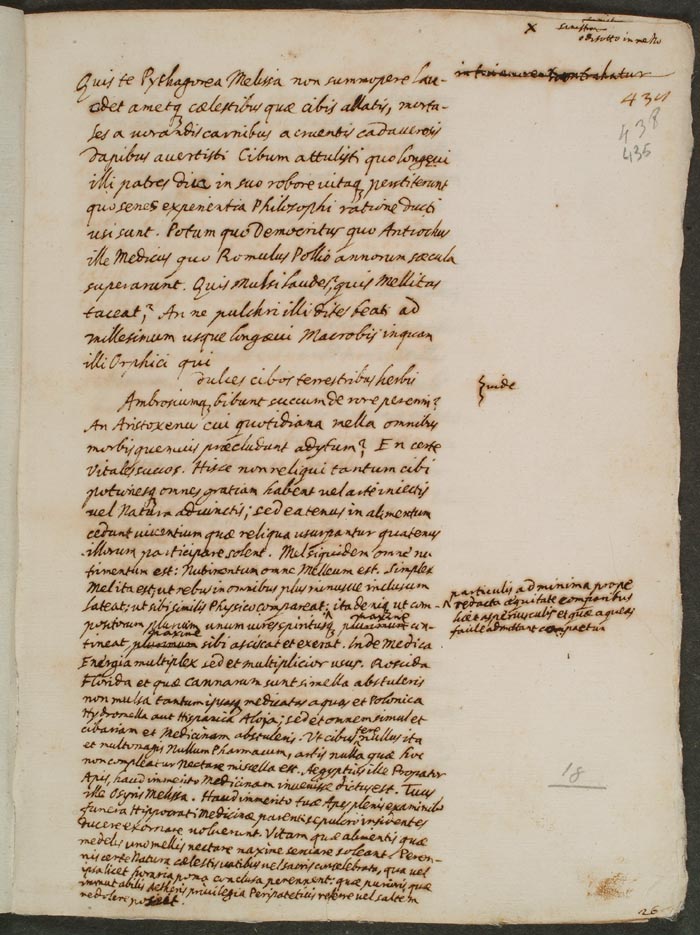 Quis te Pythagorea Melissa non summopere lau-
det ametq cælestibus quæ cibis allatis, morta-
les a vorandis carnibus a cruentis cadaverosis
Dapibus avertisti Cibum attulisti quo longævi
illi patres diu in suo robore vitaq perstiterunt
quo senes experientia Philosophi ratione ducti
usi sunt. Potum quo Democritus quo Antiochus
ille Medicus quo Romulus Pollio annorum sæcula
superarunt. Quis Mulsi laudes, quis Mellitas
taceat? An ne pulchri illi dites beati ad
millesimum usque longævi Macrobij inquam
illi Orphici qui
dulces cibos terrestribus herbis
Ambrosiumq bibunt succum de rore perenni?
An Aristoxeni cui quotidiana mella omnibus
morbis quemvis præcludunt adytum? En certe
Vitales succos. Hisce non reliqui tantum cibi
potionesq omnes gratiam habent vel arte iniectis
vel Natura adiunctis; sed eatenus in alimentum
cedunt viventium quæ reliqua usurpantur quatenus
illorum participare solent. Mel siquidem omne nu-
trimentum est: Nutrimentum omne Melleum est. Simplex
Mel ita est, ut rebus in omnibus plus minusve inclusum
Lateat; ut sibi similis Physico compareat; ita deniq ut com-
positorum plurium unum vires spiritusq maxime con-
tineat, maxime sibi asciscat et exerat. Inde Medica
Energia multiplex sed et multiplicior usus. Roscida
Florida et quæ Cannarum sunt si mella abstuleris
non mulsa tantum medicatas aquas et Polonica
Hydromella aut Hispanica Aloja; sed et omnem simul et
cibariam et Medicinam abstuleris. Ut cibus fere nullus ita
et Nullum Pharmacum, artis nulla quæ hoc
non compleatur Nectare miscella est. Aegyptiis ille Propator
Apis, haud immerito Medicinam invenisse dictus est. Tuus
ille Osyris Melissa. Haud immerito tuæ Apes plenis examinibus
funera Hippocrati Medicinæ parenti sepulcro insidentes
ducere exornare voluerunt. Vitam quæ alimentis quæ
medelis uno mellis nectare maxime solent. Peren-
nis certe Natura cælestis vatibus vel sacris concelebrato, qua vel
ipsa licet conclusa perennent: quæ purioris, quæ
immutabilis Aetheris privilegia Peripateticis referre vel saltem
redolere possat.
x
sinistra
di sotto in
438
435
vide
particulis ad minima prope
redacta æquitate comparibus
hæc asperiusculis et quæ aqueas
facile admittant compactum
18
26